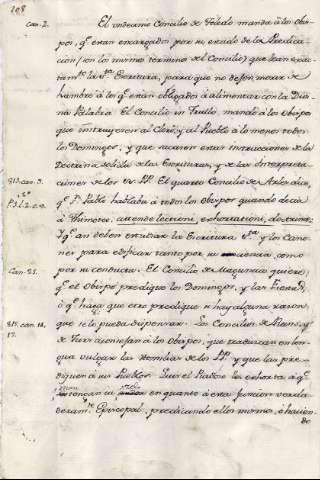 108
can. 2.
El undecimo Concilio de Toledo manda à los obis-
pos, qe. estan encargados por su oficio de la Predica-
cion (son los mismos terminos del Concilio) que lean
tamte. la Sta. Escritura, para que no dejen morir de
hambre à los qe. estan obligados à alimentar con la Divi-
na Palabra. El Concilio in Trullo, mandó à los Obispos
que instruyesen al Clero, y al Pueblo à lo menos todos
los Domingos; y que sacasen estas instrucciones de la
Doctrina solida de las Escrituras, y de las Interpreta-
ciones de los Sts. PP. El quarto Concilio de Arles dice,
813. can. 3.
qe. Sn. Pablo hablaba à todos los obispos quando decia
à Thimoteo: attende lectioni, exhortationi, doctrinæ:
Y qe. asi deben estudiar la Escritura Sta. y los Cano-
nes para edificar tanto por su ciencia, como
por su conducta. El Concilio de Maguncia quiere,
Can. 25.
qe. el Obispo predique los Domingos, y las Fiestas,
ò qe. haga que otro predique si hay alguna razon,
que se lo pueda dispensar. Los Concilios de Rems, y
813. can. 14,
15.
de Turs aconsejan à los obispos, que traduzcan en len-
gua vulgar las Homilias de los PP. y que las pre-
diquen à sus Pueblos.
en quanto à esta funcion verda-
deramte. Episcopal, predicando ellos mismos, ò hacien-
do